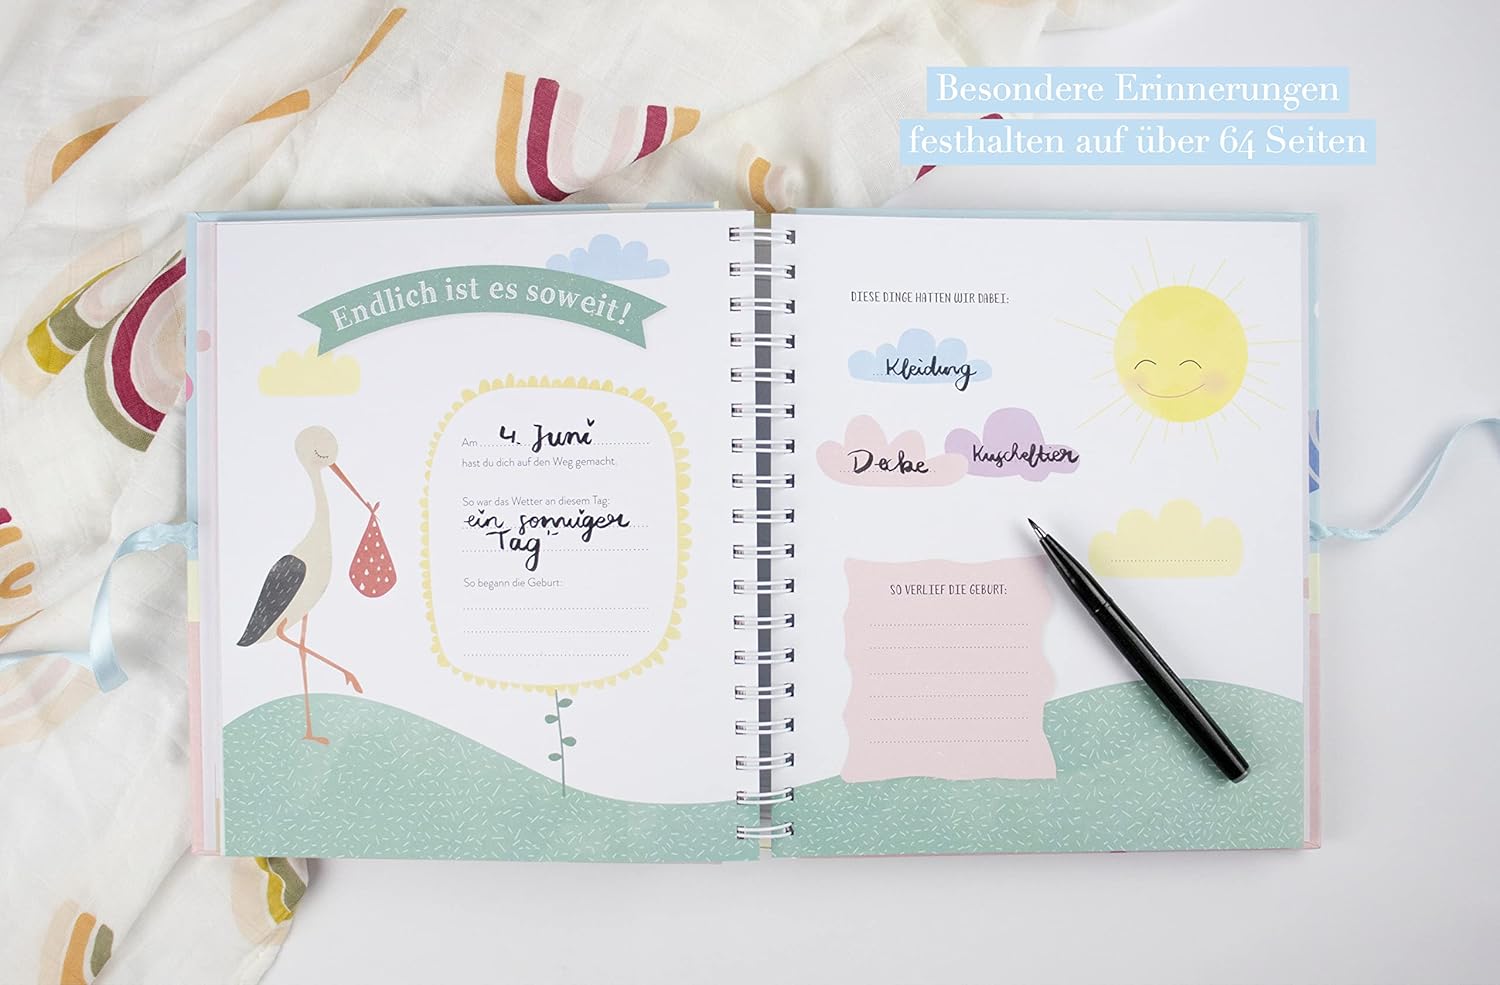 Besondere Erinnerungen
festhalten auf über 64 Seiten
Endlich ist es soweit!
Am 4. Juni
hast du dich auf den Weg gemacht.
So war das Wetter an diesem Tag:
ein sonniger
Tag
So begann die Geburt:
DIESE DINGE HATTEN WIR DABEI:
Kleidung
Decke
Kuscheltier
SO VERLIEF DIE GEBURT: